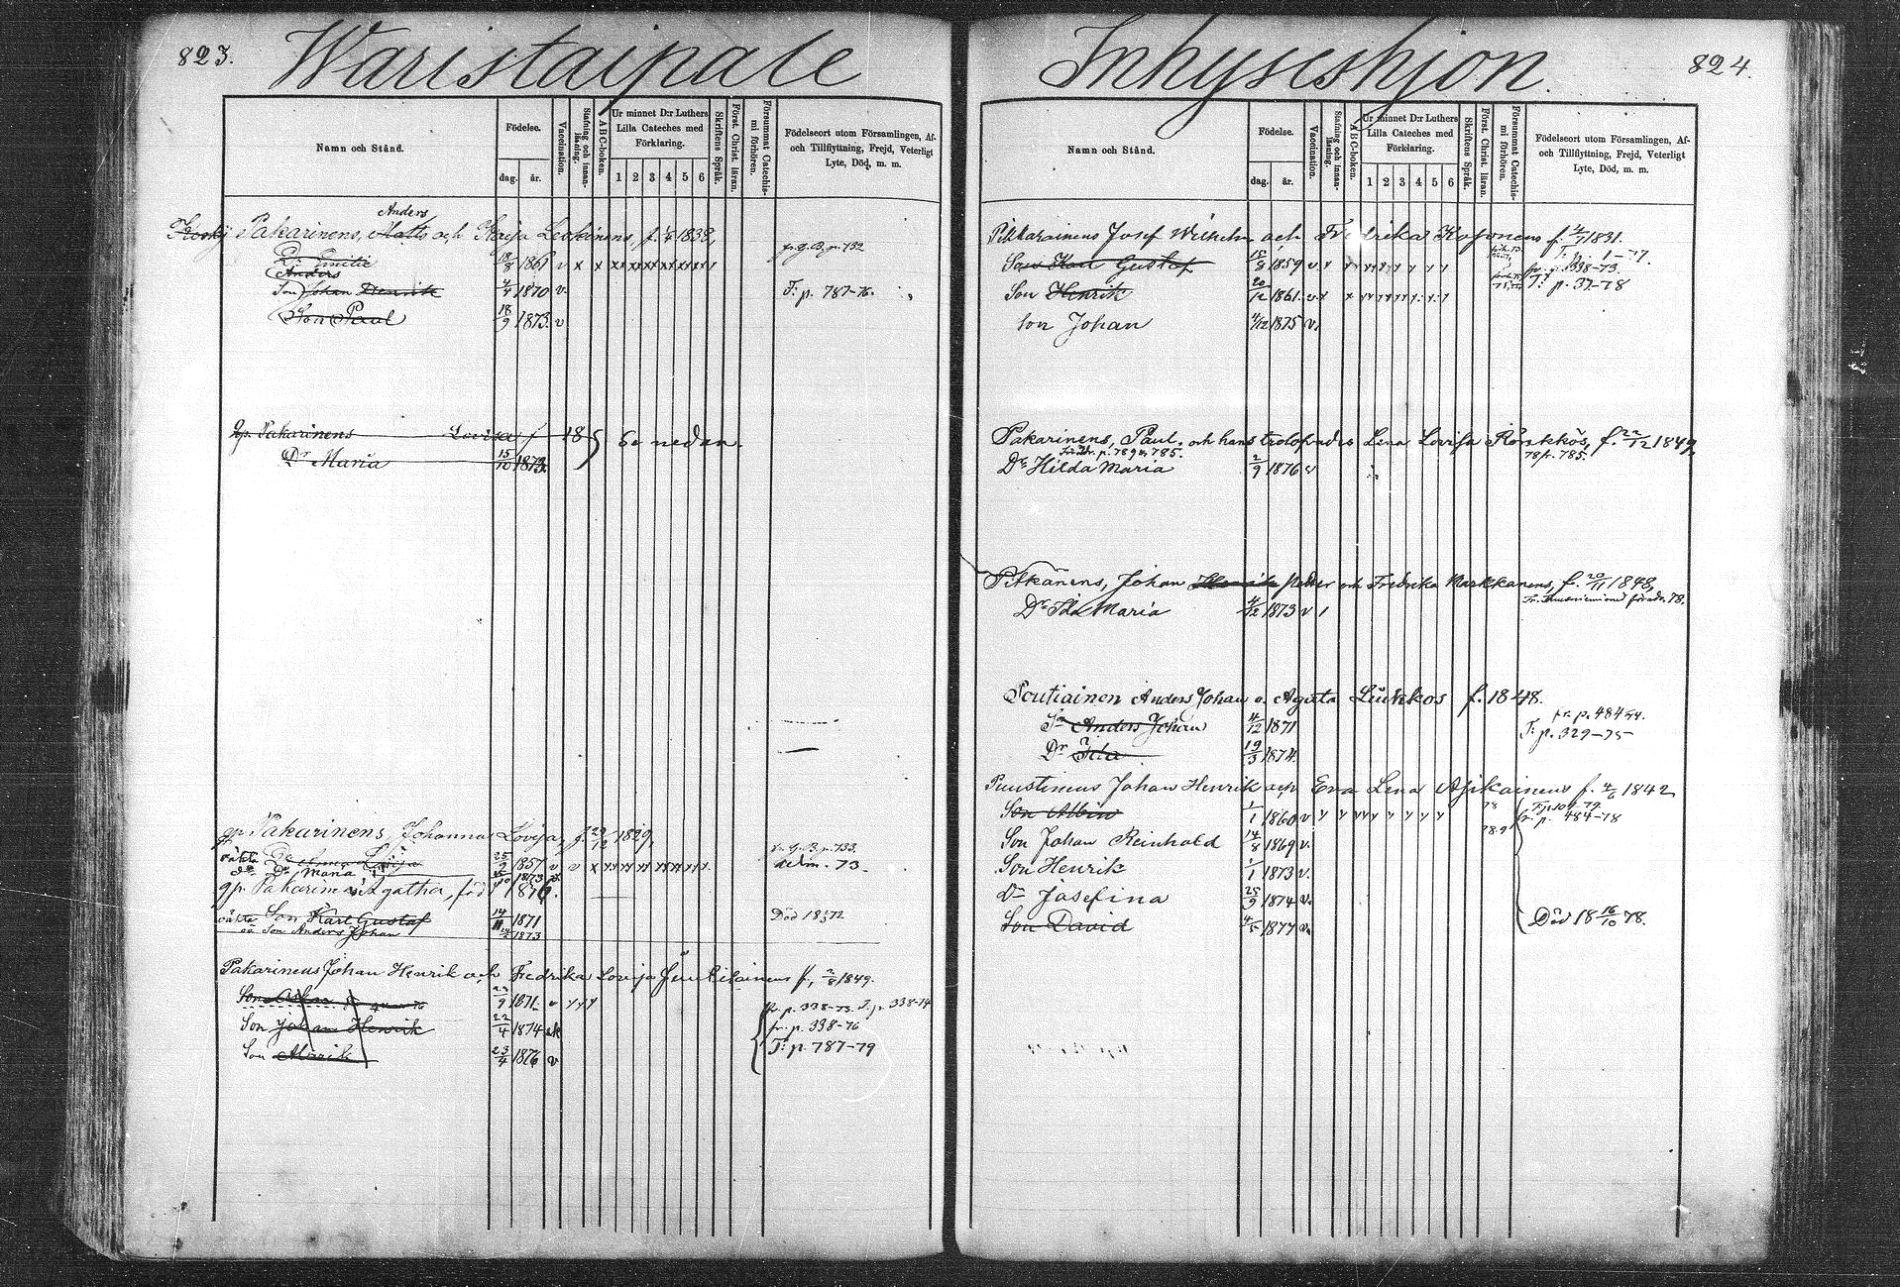 823.
Waristaipale
Namn och Stånd.
Födelse.
dag.
år.
Vaccination.
Stafning och innanläsning.
ABC-boken.
Ur minnet D:r Luthers Lilla Cateches med Förklaring.
1 2 3 4 5 6
Skriftens Språk.
Först. Christ. läran.
Försummat Catechismi förhören.
Födelseort utom Församlingen, Af- och Tillflyttning, Frejd, Veterligt Lyte, Död, m. m.
Anders
Pakarinens, Matts och Leskinens, f. 1838,
Dr Emilie 18/8 1861 v x x fr. g. B. p. 732
Anders
Son Johan Henrik 4/4 1870 v. T: p. 787-76.
Son Paul 18/9 1873. v
gp. Pakarinens Lovisa f 18 Se nedan.
Dr Maria 15/10 1873.
gp. Pakarinens, Johanna Lovisa, f. 29/12 1829,
oäkta Lovisa 25/9 1857 v v fr. g. B. p. 733.
do Dr Maria 15/10 1873 dedm. 73.
gp. Pakarinen Agatha, född 1876.
oäkta Son Karl Gustaf 14/11 1871 Död 1872
oä Son Anders Johan 1873
Pakarinens Johan Henrik och Fredrika Lovisa f. 2/8 1849.
Son Oskar 23/9 1871 v fr. p. 338-73. T. p. 338-74
Son Johan Henrik 22/4 1874 fr. p. 338-76
Son Henrik 23/4 1876 v T: p. 787-79
824.
Inhyseshjon.
Namn och Stånd.
Födelse.
dag.
år.
Vaccination.
Stafning och innanläsning.
ABC-boken.
Ur minnet D:r Luthers Lilla Cateches med Förklaring.
1 2 3 4 5 6
Skriftens Språk.
Först. Christ. läran.
Försummat Catechismi förhören.
Födelseort utom Församlingen, Af- och Tillflyttning, Frejd, Veterligt Lyte, Död, m. m.
Pikkarainens Josef Wilhelm och Fredrika Kosonens f. 4/7 1831.
T: p. 1-77.
Son Karl Gustaf 15/8 1859 v fr. p. 338-73.
Son Henrik 20/12 1861 v T: p. 37-78
Son Johan 4/12 1875 v.
Pakarinens, Paul. och hans trolofvades Lena Lovisa Rönkkös, f. 22/12 1849,
p. 789 785. 78 fr. 785.
Dr Hilda Maria 2/9 1876 v
Pitkänens, Johan Henrik Petter och Fredrika Markkanens, f. 20/11 1848,
78.
Dr Ida Maria 4/12 1873 v
Poutiainen Anders Johan o. Agata Liukkos f. 1848.
fr. p. 484
Sn Anders Johan 4/12 1871 T: p. 329-75
Dr Ida 19/3 1874.
Puustinens Johan Henrik och Eva Lena Asikainens f. 4/6 1842
Son Albin 1/1 1860 v fr. p. 484-78
Son Johan Reinhold 14/8 1869 v.
Son Henrik 1/1 1873 v.
Dr Josefina 25/9 1874 v.
Son David 4/5 1877 v. Död 18 16/10 78.